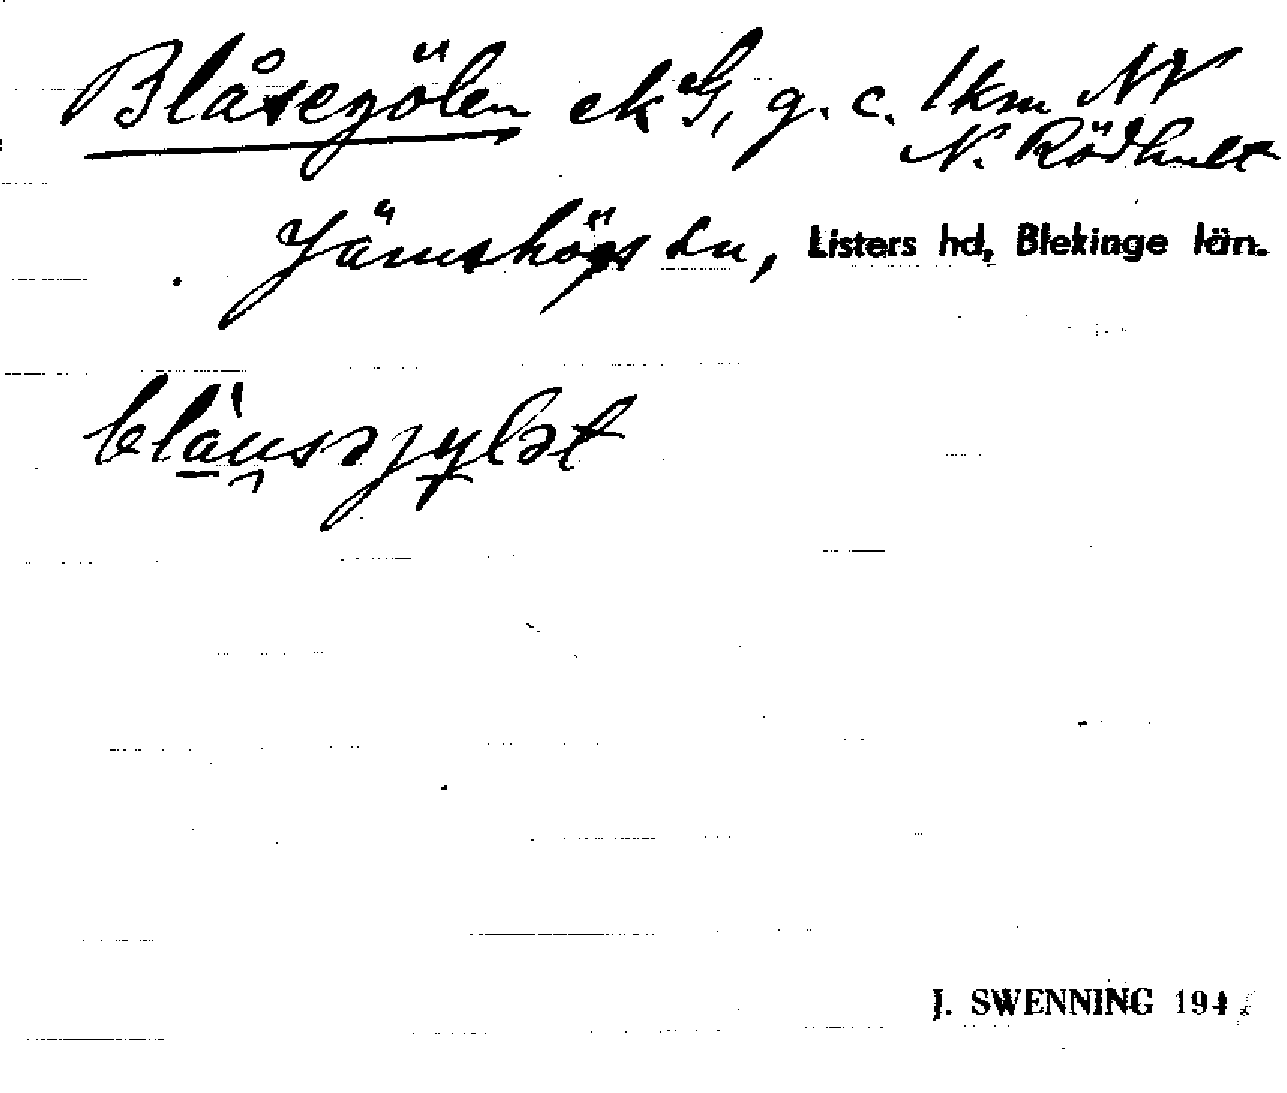 Blåsegölen ekG, g. c. 1km NV
N. Rödhult
Jämshögs sn, Listers hd, Blekinge län.
J. SWENNING 194